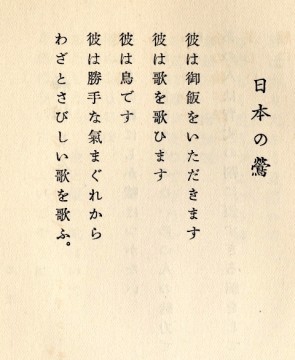 日本の鶯
彼は御飯をいただきます
彼は歌を歌ひます
彼は鳥です
彼は勝手な氣まぐれから
わざとさびしい歌を歌ふ。